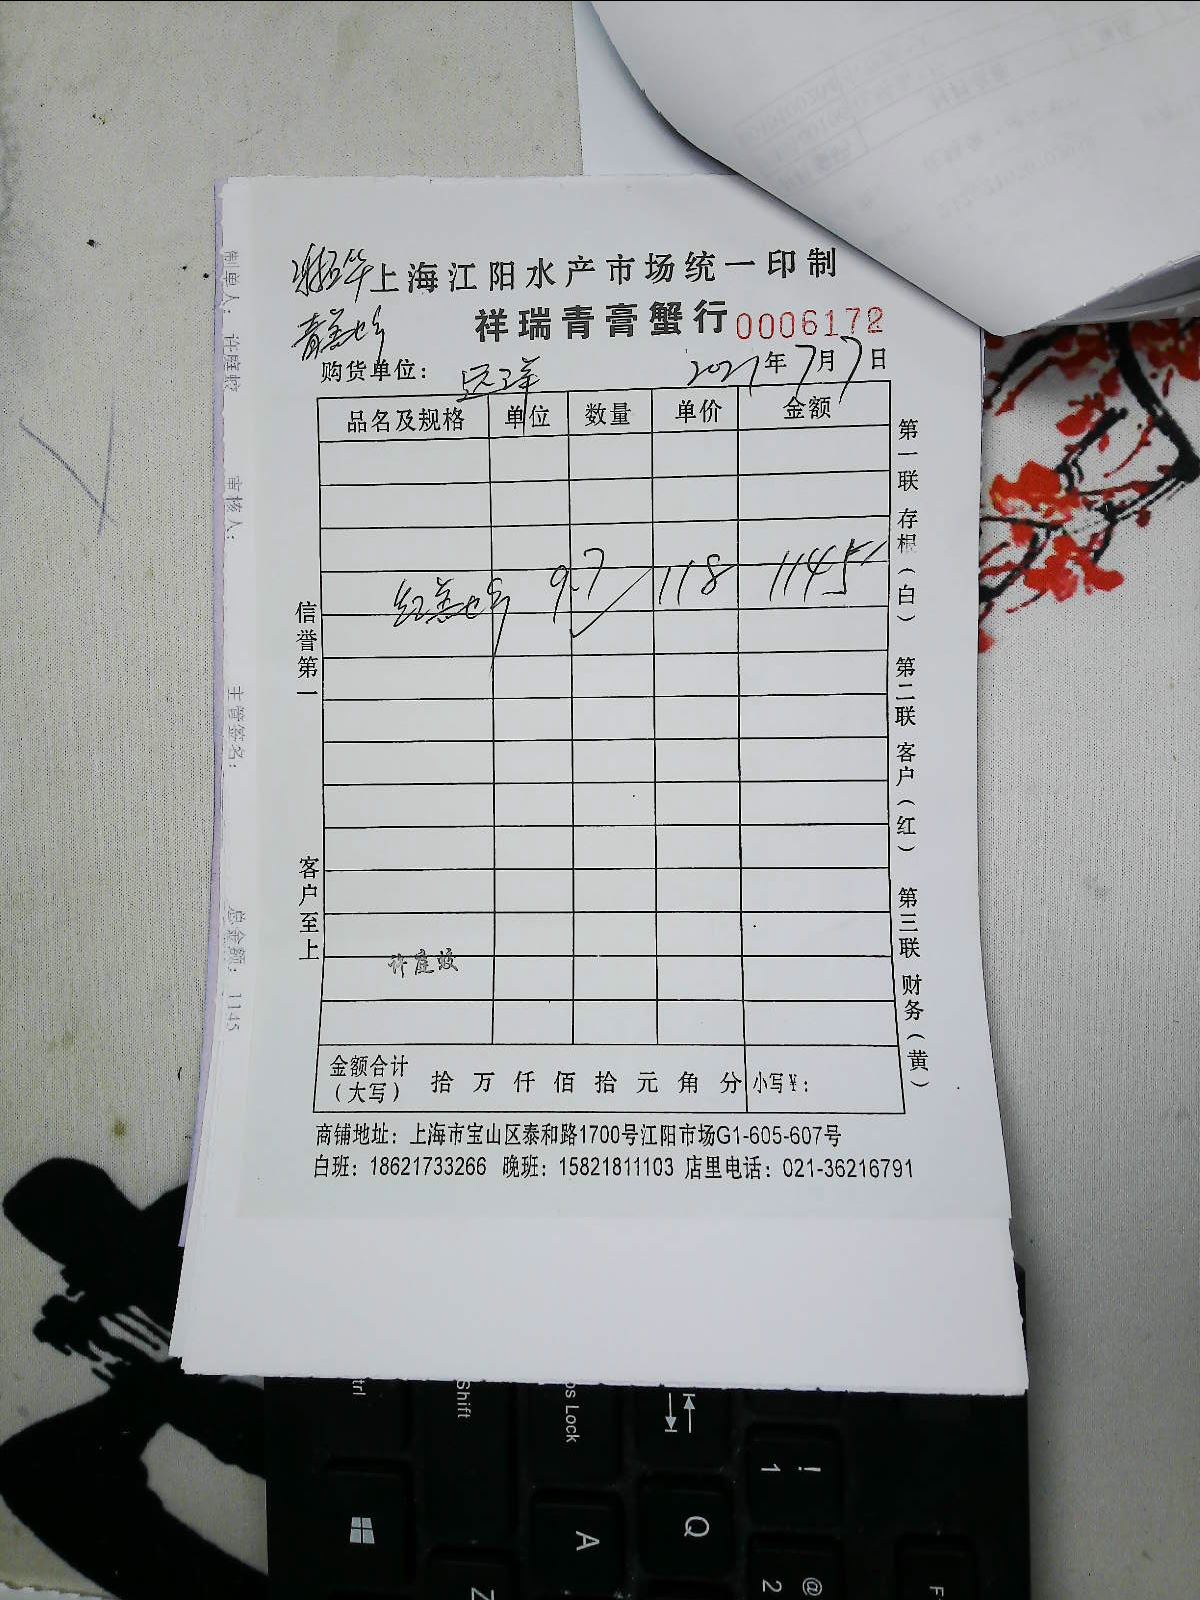 上海江阳水产市场统一印制
祥瑞青膏蟹行 0006172
购货单位： 远洋 2021年7月7日
品名及规格 单位 数量 单价 金额
红膏 9.7 118 1145
信誉第一
客户至上
许庭蛟
金额合计（大写） 拾 万 仟 佰 拾 元 角 分 小写¥：
商铺地址：上海市宝山区泰和路1700号江阳市场G1-605-607号
白班：18621733266 晚班：15821811103 店里电话：021-36216791
第一联 存根（白） 第二联 客户（红） 第三联 财务（黄）
制单人： 许庭蛟 审核人： 主管签名： 总金额： 1145
trl
Shift
os Lock
! 1
A
Q
Z
@ 2